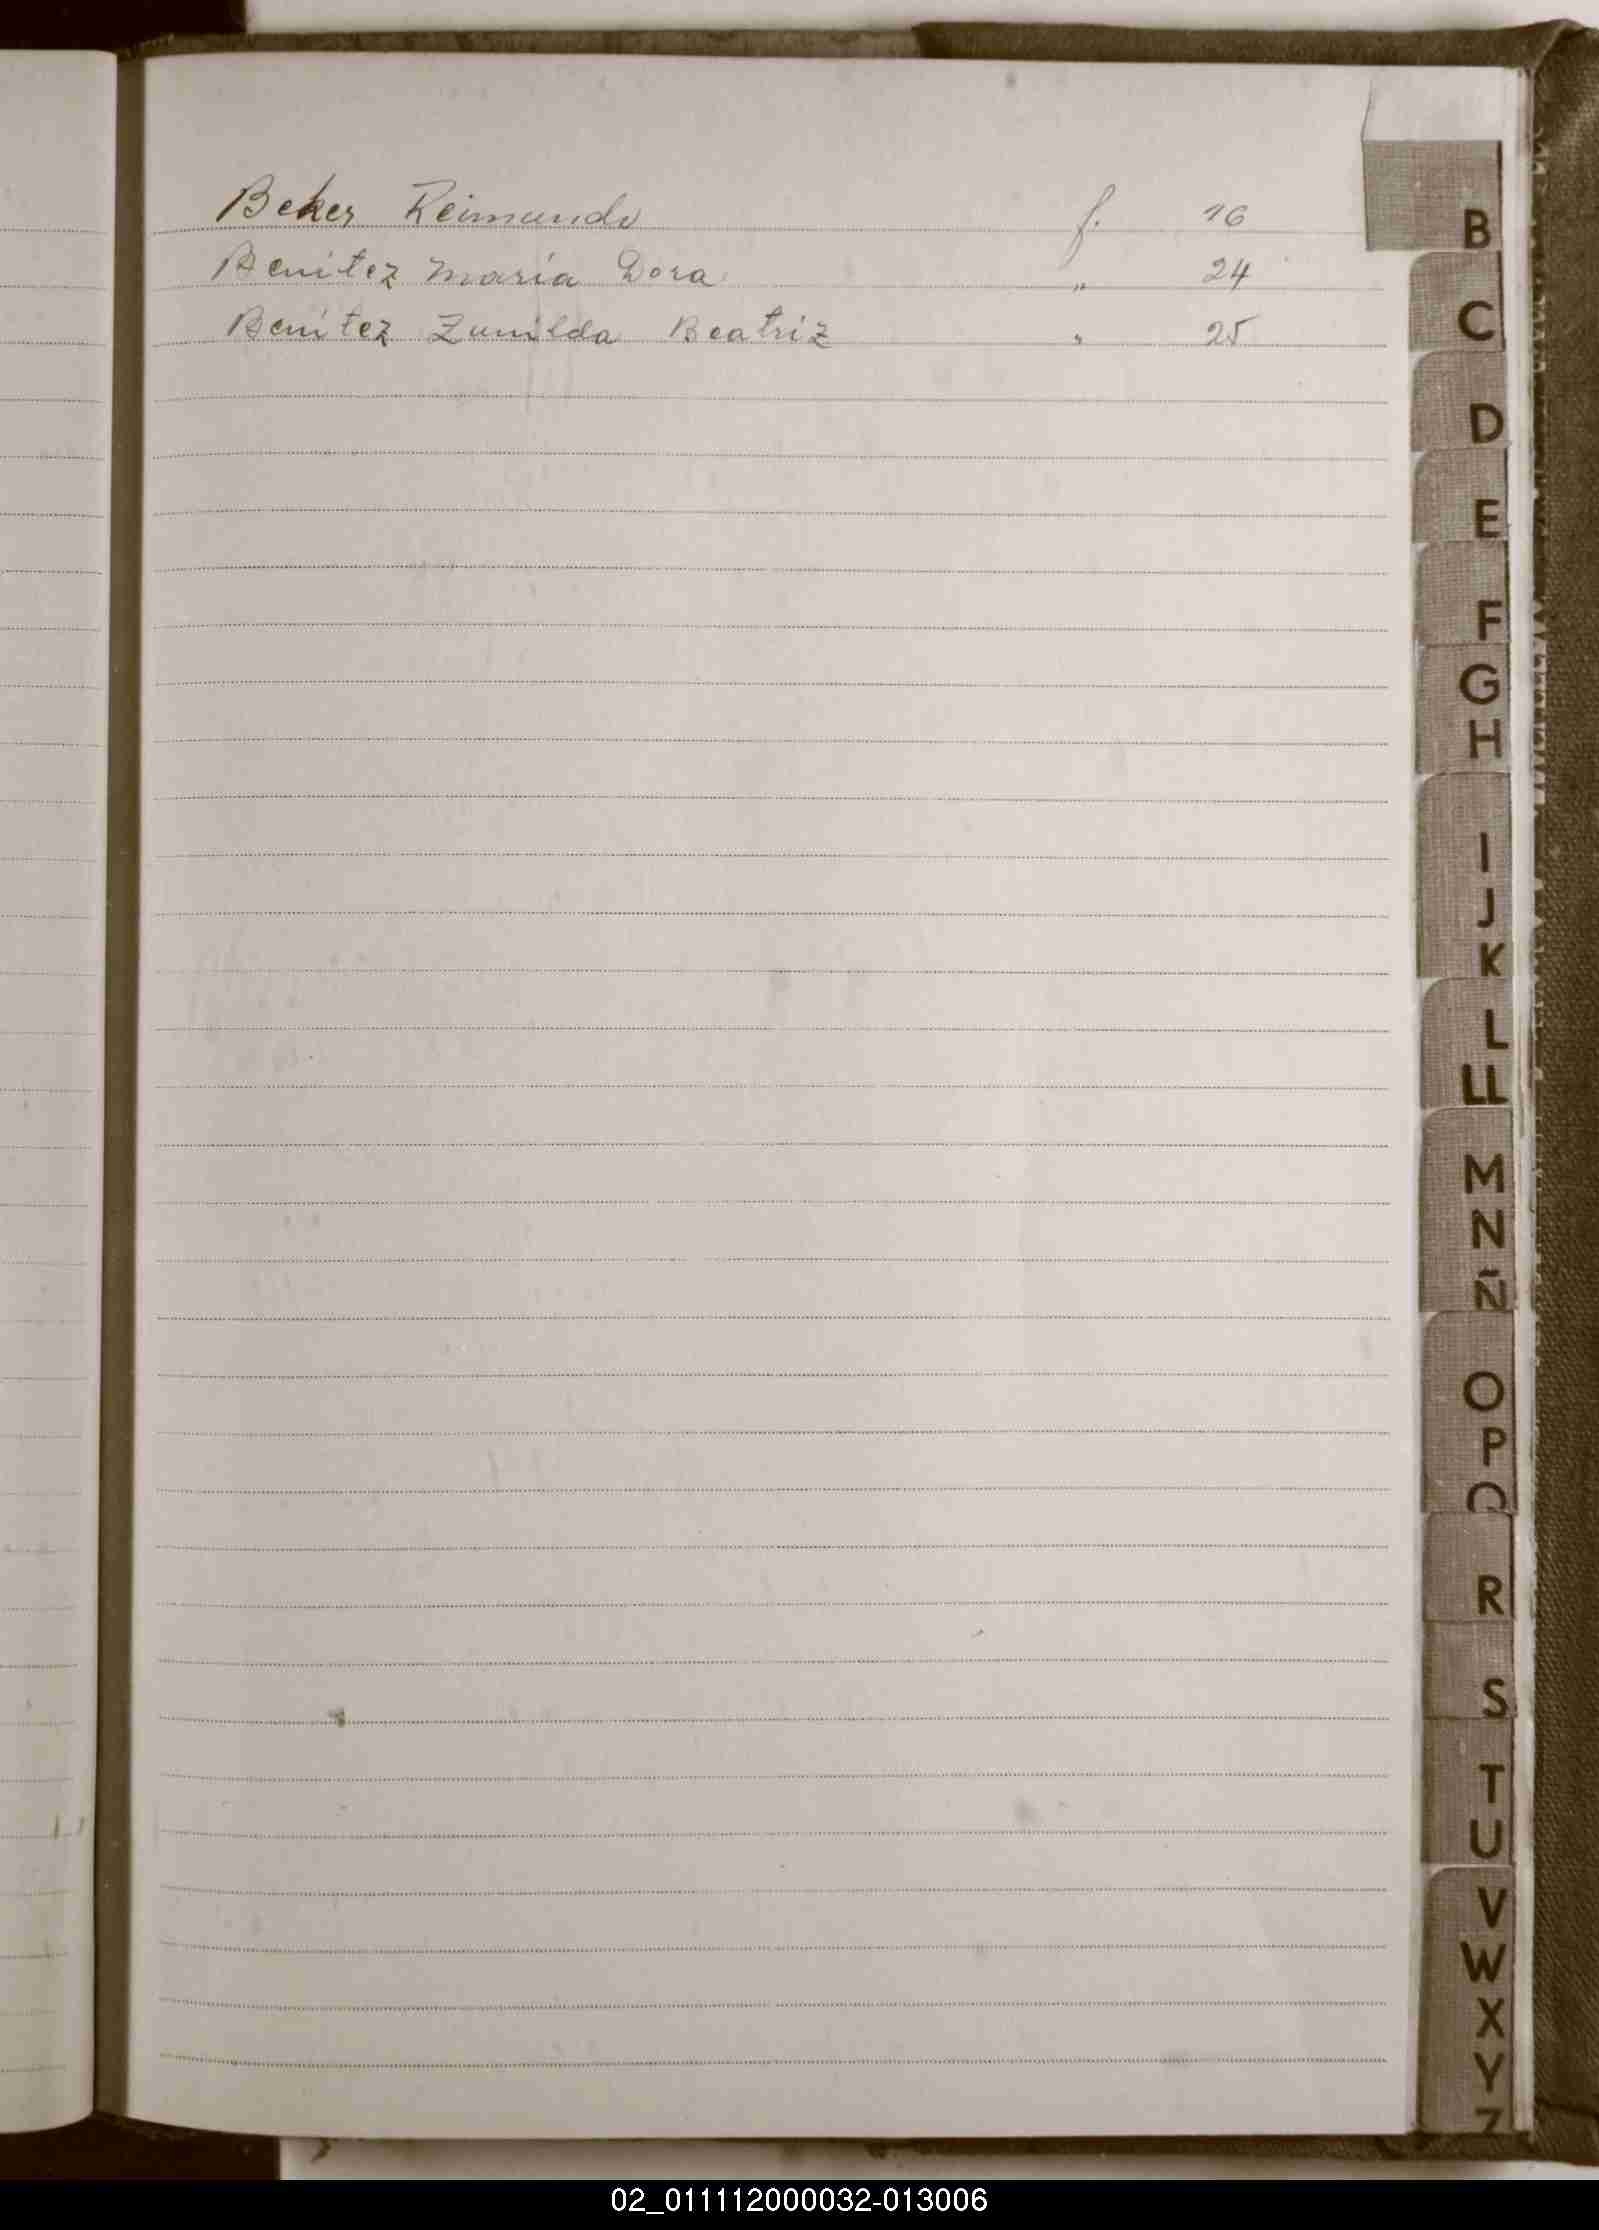 Beker Reimundo f. 16
Benitez Maria Dora " 24
Benitez Zunilda Beatriz " 25
B
C
D
E
F
G
H
I
J
K
L
LL
M
N
Ñ
O
P
Q
R
S
T
U
V
W
X
Y
Z
02_011112000032-013006